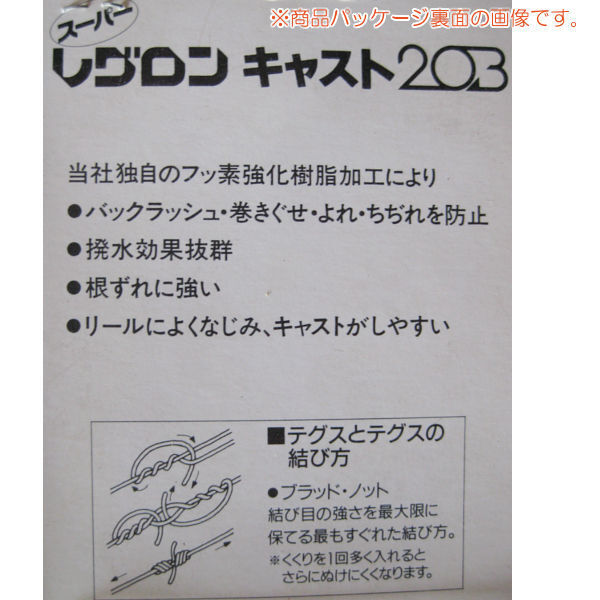 ※商品パッケージ裏面の画像です。
スーパー
レグロン キャスト203
当社独自のフッ素強化樹脂加工により
●バックラッシュ・巻きぐせ・よれ・ちぢれを防止
●撥水効果抜群
●根ずれに強い
●リールによくなじみ、キャストがしやすい
■テグスとテグスの
結び方
●ブラッド・ノット
結び目の強さを最大限に
保てる最もすぐれた結び方。
※くくりを1回多く入れると
さらにぬけにくくなります。